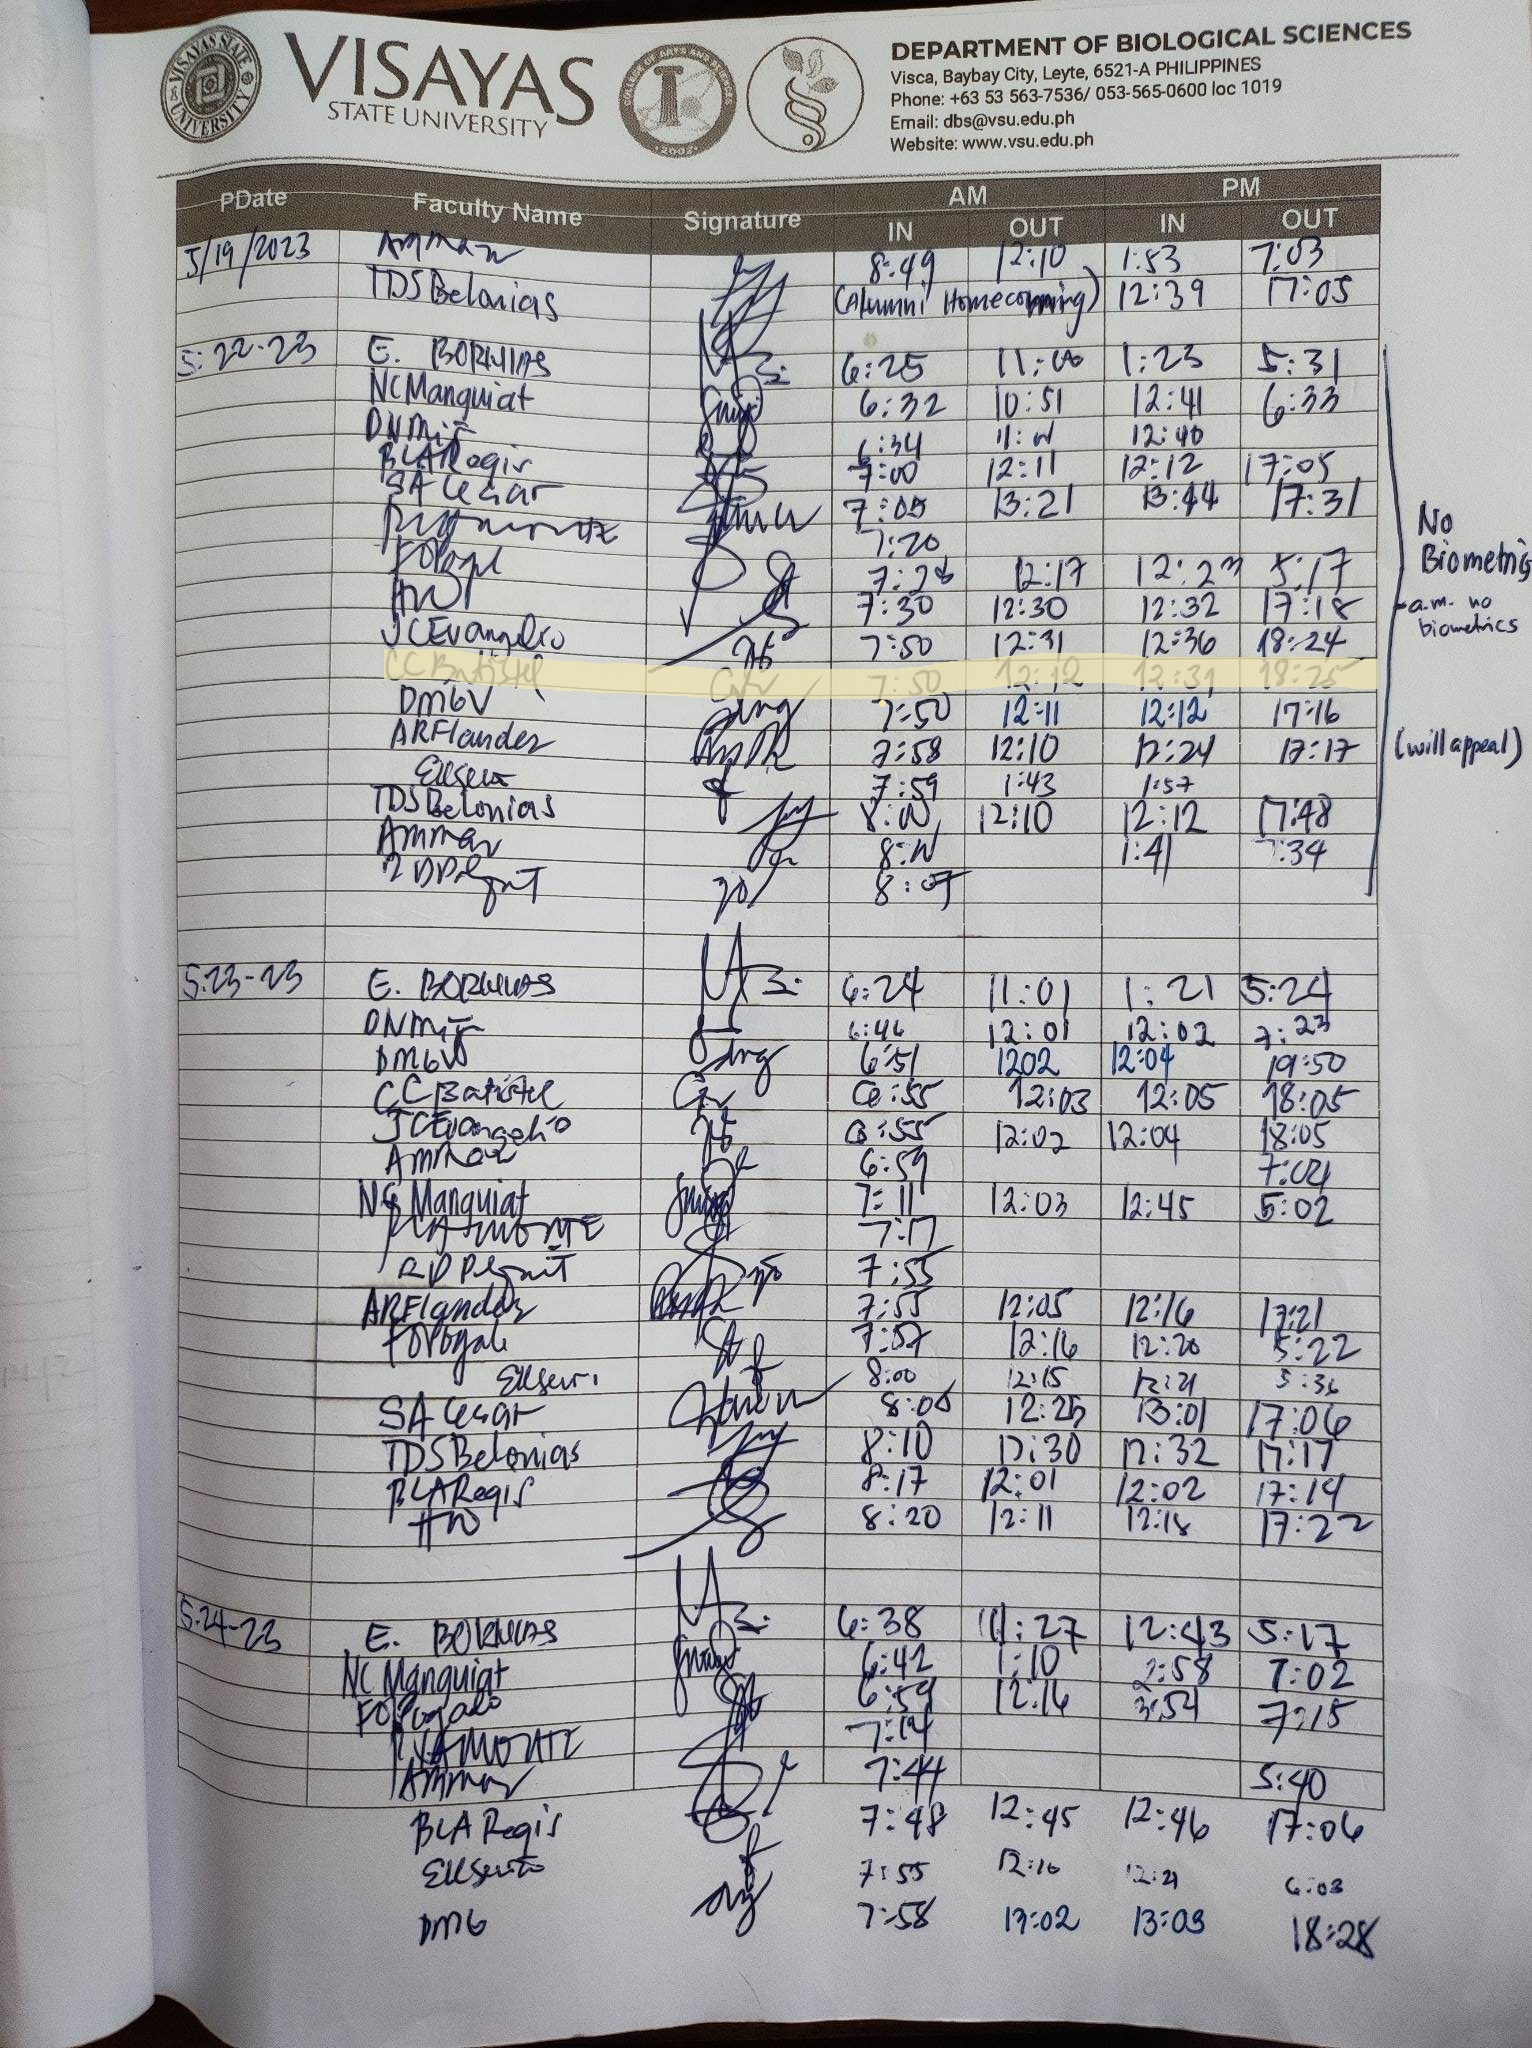 VISAYAS
STATE UNIVERSITY
VISAYAS STATE UNIVERSITY
COLLEGE OF ARTS AND SCIENCES
2002
DEPARTMENT OF BIOLOGICAL SCIENCES
Visca, Baybay City, Leyte, 6521-A PHILIPPINES
Phone: +63 53 563-7536/ 053-565-0600 loc 1019
Email: dbs@vsu.edu.ph
Website: www.vsu.edu.ph
PDate Faculty Name Signature AM PM
IN OUT IN OUT
5/19/2023 Ammar 8:49 12:10 1:53 7:03
TDSBelonias (Alumni Homecoming) 12:39 17:05
5:22-23 E. BORINAS 6:25 11:00 1:23 5:31
NCManquiat 6:32 10:51 12:41 6:33
DNMit 6:34 12:40
BLARegis 7:00 12:11 12:12 17:05
SA Cesar 7:05 13:21 13:44 17:31
7:20
12:17 12:23 5:17
HW 7:30 12:30 12:32 17:18
JCEvangelio 7:50 12:31 12:36 18:24
CC Batistel 7:50 12:12 12:31 18:25
DMGV 7:50 12:11 12:12 17:16
ARFlandez 7:58 12:10 12:24 17:17
7:59 1:43 1:57
TDSBelonias 12:10 12:12 17:48
Ammar 1:41 7:34
8:07
No
Biometrics
-a.m. no
biometrics
(will appeal)
5:23-23 E. BORINAS 6:24 11:01 1:21 5:24
DNMit 6:46 12:01 12:02 7:23
DMGV 6:51 1202 12:04 19:50
CC Batistel 6:55 12:03 12:05 18:05
JCEvangelio 6:55 12:02 12:04 18:05
Ammar 6:59 7:04
NC Manquiat 7:11 12:03 12:45 5:02
7:17
7:55
ARFlandez 7:55 12:05 12:16 17:21
FOPogado 7:57 12:16 12:20 5:22
8:00 12:15 12:21 5:36
SA Cesar 8:08 12:25 13:01 17:06
TDSBelonias 8:10 12:30 12:32 17:17
BLARegis 8:17 12:01 12:02 17:14
HW 8:20 12:11 12:18 17:22
5:24-23 E. BORINAS 6:38 11:27 12:43 5:17
NC Manquiat 6:42 1:10 2:58 7:02
FOPogado 6:59 12:16 3:54 7:15
7:14
Ammar 7:44 5:40
BLA Regis 7:48 12:45 12:46 17:06
7:55 12:10 12:21 6:03
DMG 7:58 13:02 13:03 18:28